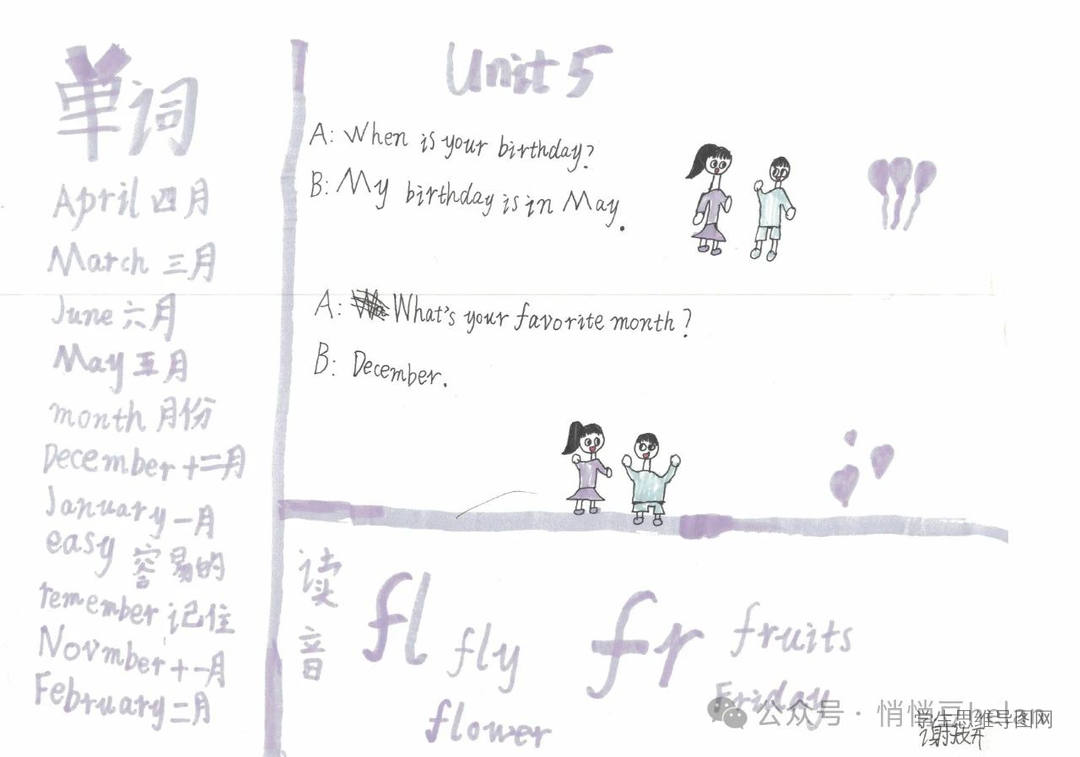 单词
April 四月
March 三月
June 六月
May 五月
month 月份
December 十二月
January 一月
easy 容易的
remember 记住
Novmber 十一月
February 二月
Unit 5
A: When is your birthday?
B: My birthday is in May.
A: What's your favorite month?
B: December.
读音
fl fly
flower
fr fruits
Friday
公众号·悄悄豆
学生思维导图网